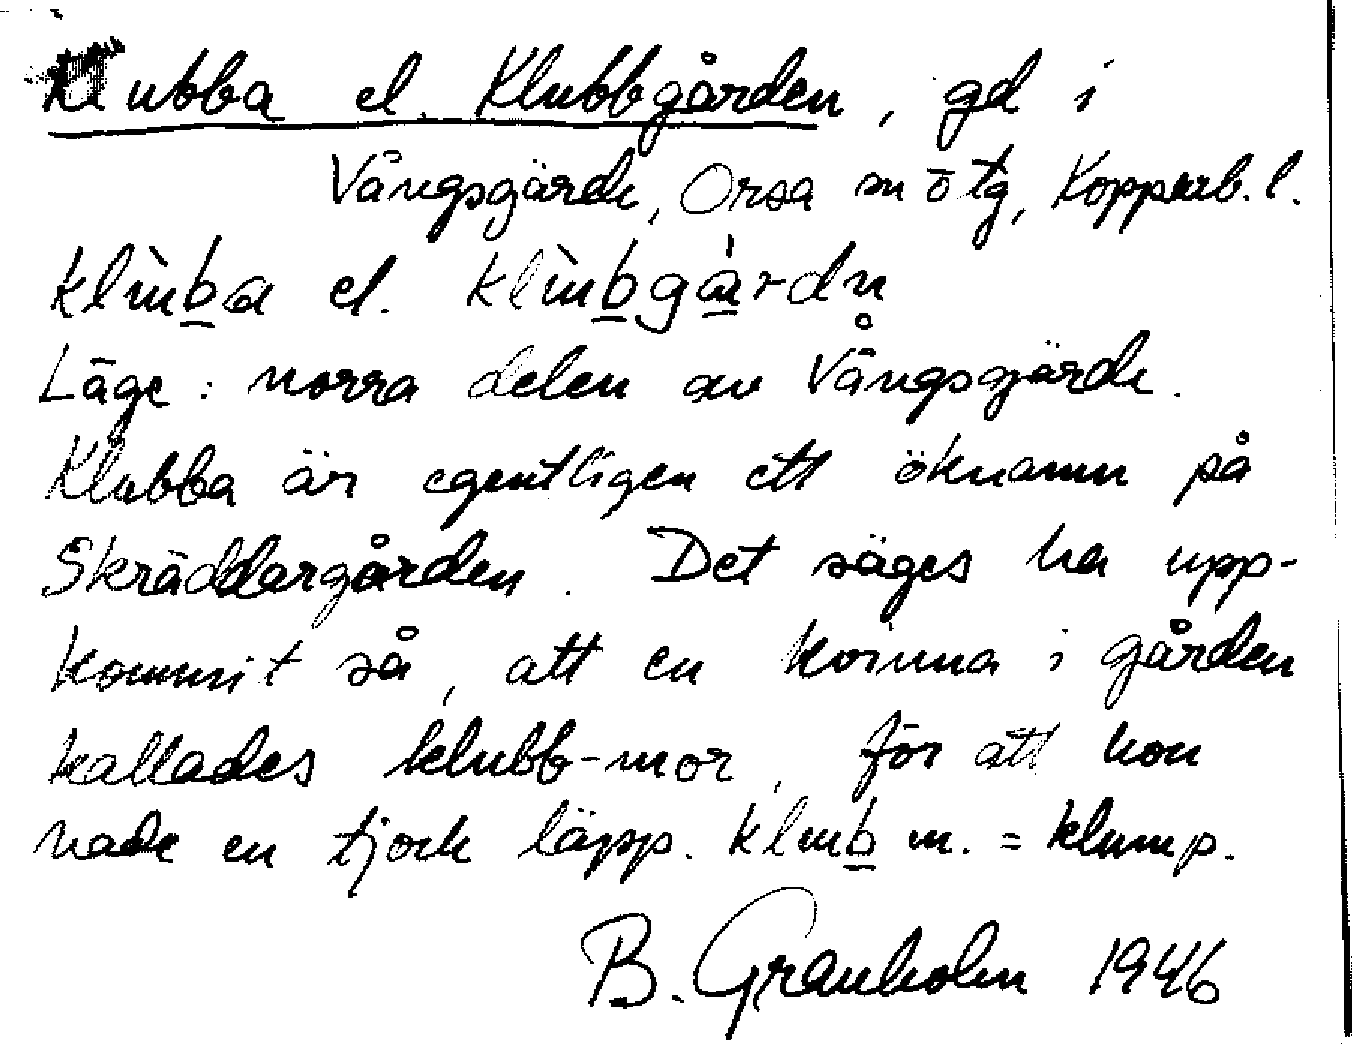 Klubba el. Klubbgården, gd i
Vångsgärde, Orsa m ö tg, Kopparb. l.
klùba el. klùbgàrdn
Läge: norra delen av Vångsgärde.
Klubba är egentligen ett öknamn på
Skräddargården. Det säges ha upp-
kommit så, att en kvinna i gården
kallades klubb-mor, för att hon
hade en tjock läpp. klub m. = klump.
B. Granholm 1946